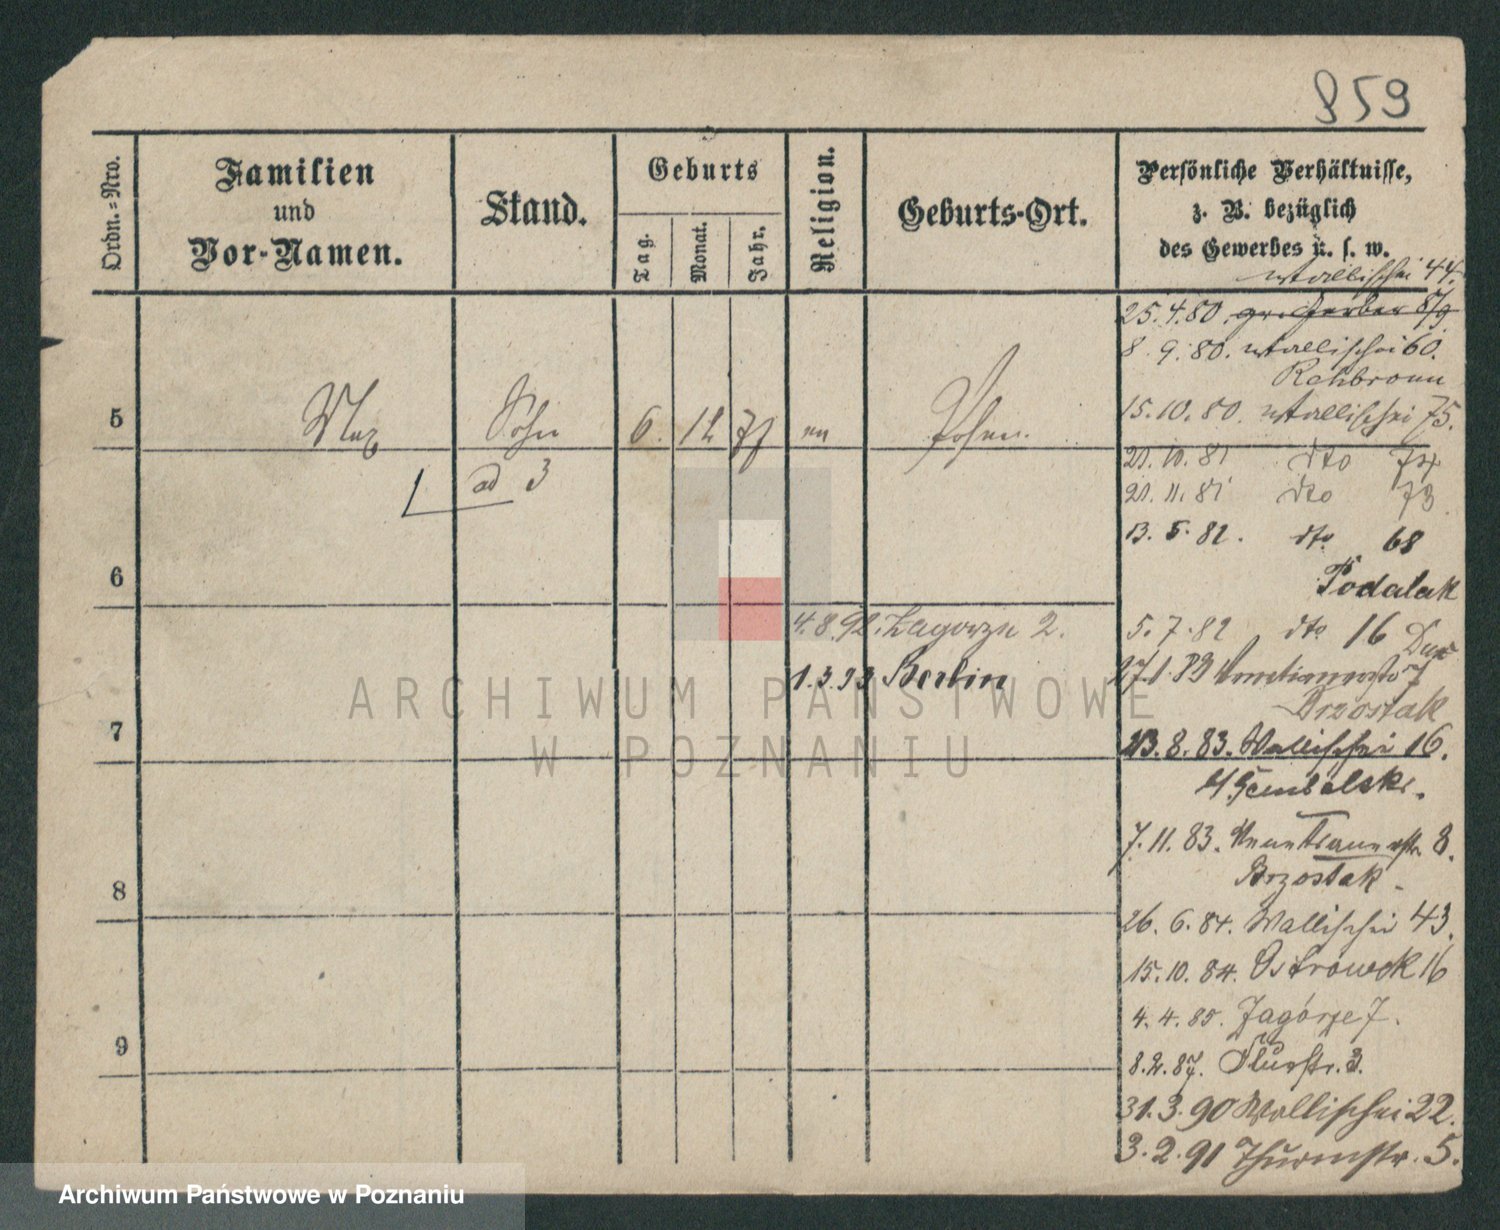 859
Ordn.-Nro.
Familien
und
Vor-Namen.
Stand.
Geburts
Tag.
Monat.
Jahr.
Religion.
Geburts-Ort.
Persönliche Verhältnisse,
z. B. bezüglich
des Gewerbes u. s. w.
Wallischei 44.
25.4.80. gr. Gerber 8/9
8 9.80. Wallischei 60.
Rehbronn
15.10.80. Wallischei 75.
5
Max
Sohn
6.
12
Posen.
ad 3
21.10.81 dto 74
21.11.81 dto 73
13.5.82. dto 68
Podalak
6
4.8.92. Zagorze 2.
5.7.82 dto 16
1.3.93 Berlin
27.1.83 Venetianerstr 7
Brzostak
7
13.8.83. Wallischei 16.
Gembalski.
7.11.83. Venetianerstr. 8.
Brzostak.
8
26.6.84. Wallischei 43.
15.10.84. Ostrowek 16
4.4.85. Zagórze 7.
9
8.2.87. Flurstr. 3.
31.3.90 Wallischei 22.
3.2.91 Thurmstr. 5.
ARCHIWUM PAŃSTWOWE
W POZNANIU
Archiwum Państwowe w Poznaniu